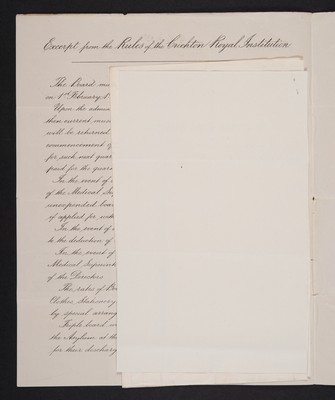 Excerpt from the Rules of the Crichton Royal Institution
The Board mu
on 1st February
Upon the admis
then current, mus
will be returned
commencement of
for such next quar
paid for the quar
In the event of
of the Medical Su
unexpended boar
if applied for with
In the event of
to the detention of
In the event of
Medical Superint
of the Directors
The rates of Bo
Clothes, Stationery
by special arrang
Triple board w
the Asylum at th
for their discharg